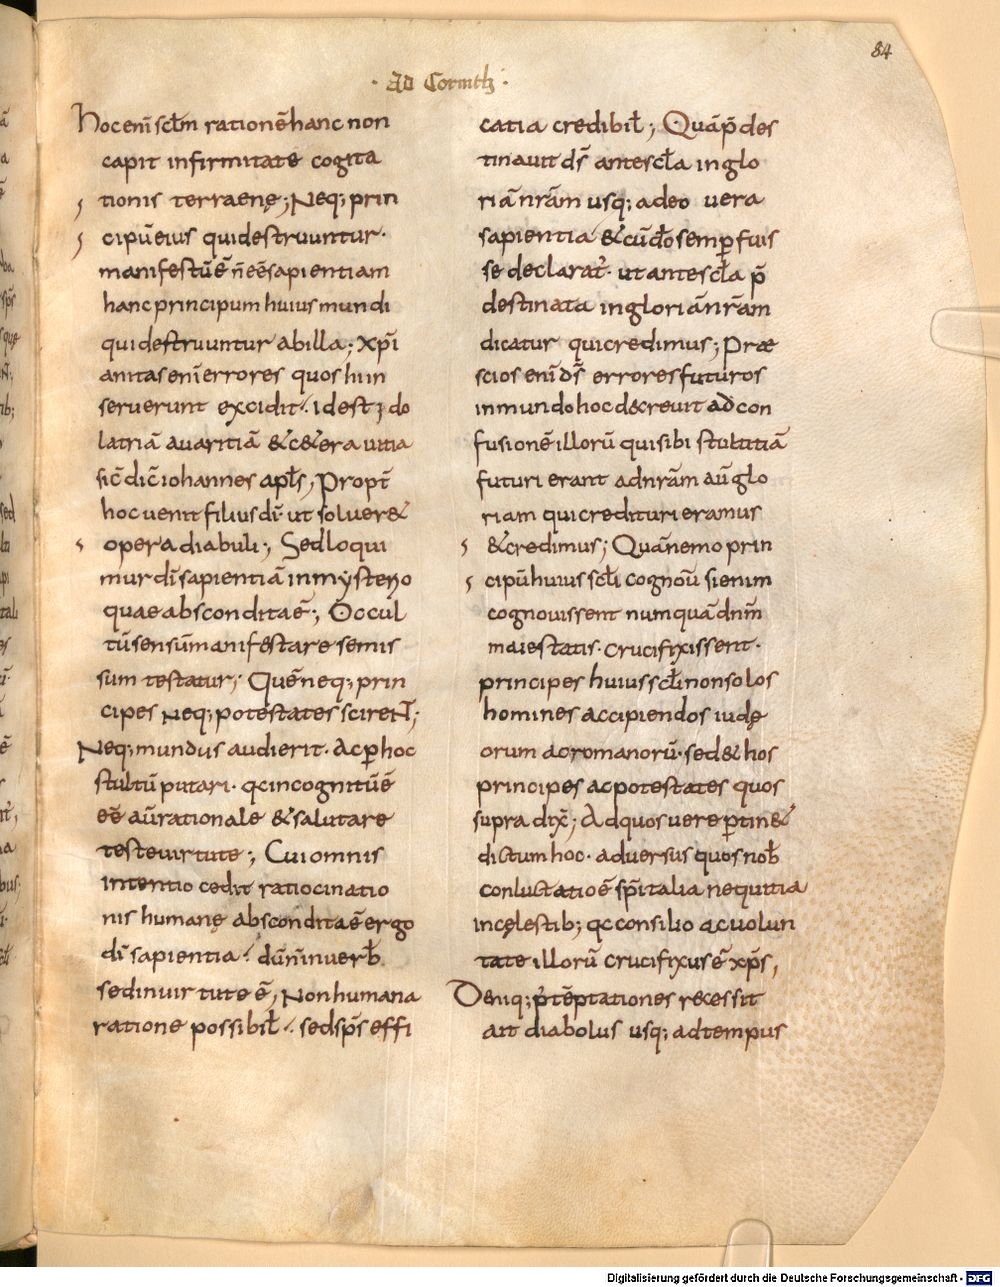 84
· Ad Corinth ·
Hoc enī sclm̄ rationē hanc non
capit infirmitate cogita
tionis terraenę; Neq; prin
cipū eius qui destruuntur·
manifestū ē n̄ eē sapientiam
hanc principum huius mundi
qui destruuntur ab illa; xp̄i
anitas enī errores quos hi in
seruerunt excidit· idest ido
latriā auaritiā & c&era uitia
sic̄ dic̄ iohannes apl̄s, Propt̄
hoc uenit filius dī ut soluer&
opera diaboli; Sed loqui
mur dī sapientiā in mysterio
quae abscondita ē; Occul
tū sensū manifestare se mis
sum testatur; Quē neq; prin
cipes Neq; potestates scireNT;
Neq; mundus audierit· ac ꝑ hoc
stultū putari· qc incognitū ē
eē aūr rationale & salutare
teste uirtute; Cui omnis
intentio cedit ratiocinatio
nis humanę abscondita ē ergo
dī sapientia· dū n̄ in uerb̄
sed in uirtute ē, Non humana
ratione possibil̄· sed sp̄s effi
catia credibil̄; Quā p̄ des
tinauit ds̄ ante scl̄a in glo
riā nr̄am usq; adeo uera
sapientia & cū dō semꝑ fuis
se declarat̄· ut ante scl̄a p̄
destinata in gloriā nr̄am
dicatur qui credimus; Præ
scios enī ds̄ errores futuros
in mundo hoc decreuit ad con
fusionē illorū qui sibi stultitiā
futuri erant ad nr̄am aū glo
riam qui credituri eramus
& credimus; Quā nemo prin
cipū huius scl̄i cognoū si enim
cognouissent numquā dnm̄
maiestatis· crucifixissent·
principes huius scl̄i non solos
homines accipiendos iudę
orum ac romanorū· sed & hos
principes ac potestates quos
supra dix̄; Ad quos uere ꝑtin&
dictum hoc· aduersus quos nob̄
conluctatio ē sp̄italia nequitia
in cęlestib; qc consilio ac uolun
tate illorū crucifixus ē xp̄s,
Deniq; p̄ tēptationes recessit
ait diabolus usq; ad tempus
Digitalisierung gefördert durch die Deutsche Forschungsgemeinschaft - DFG